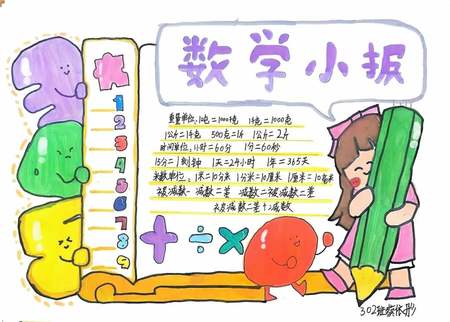 数学小报
1
2
3
4
5
6
7
8
9
重量单位:1吨=1000千克 1千克=1000克
1公斤=1千克 500克=1斤 1公斤=2斤
时间单位:1时=60分 1分=60秒
15分=1刻钟 1天=24小时 1年=365天
米数单位:1米=10分米 1分米=10厘米 1厘米=10毫米
被减数-减数=差 减数=被减数-差
被减数=差+减数
+÷×
302班